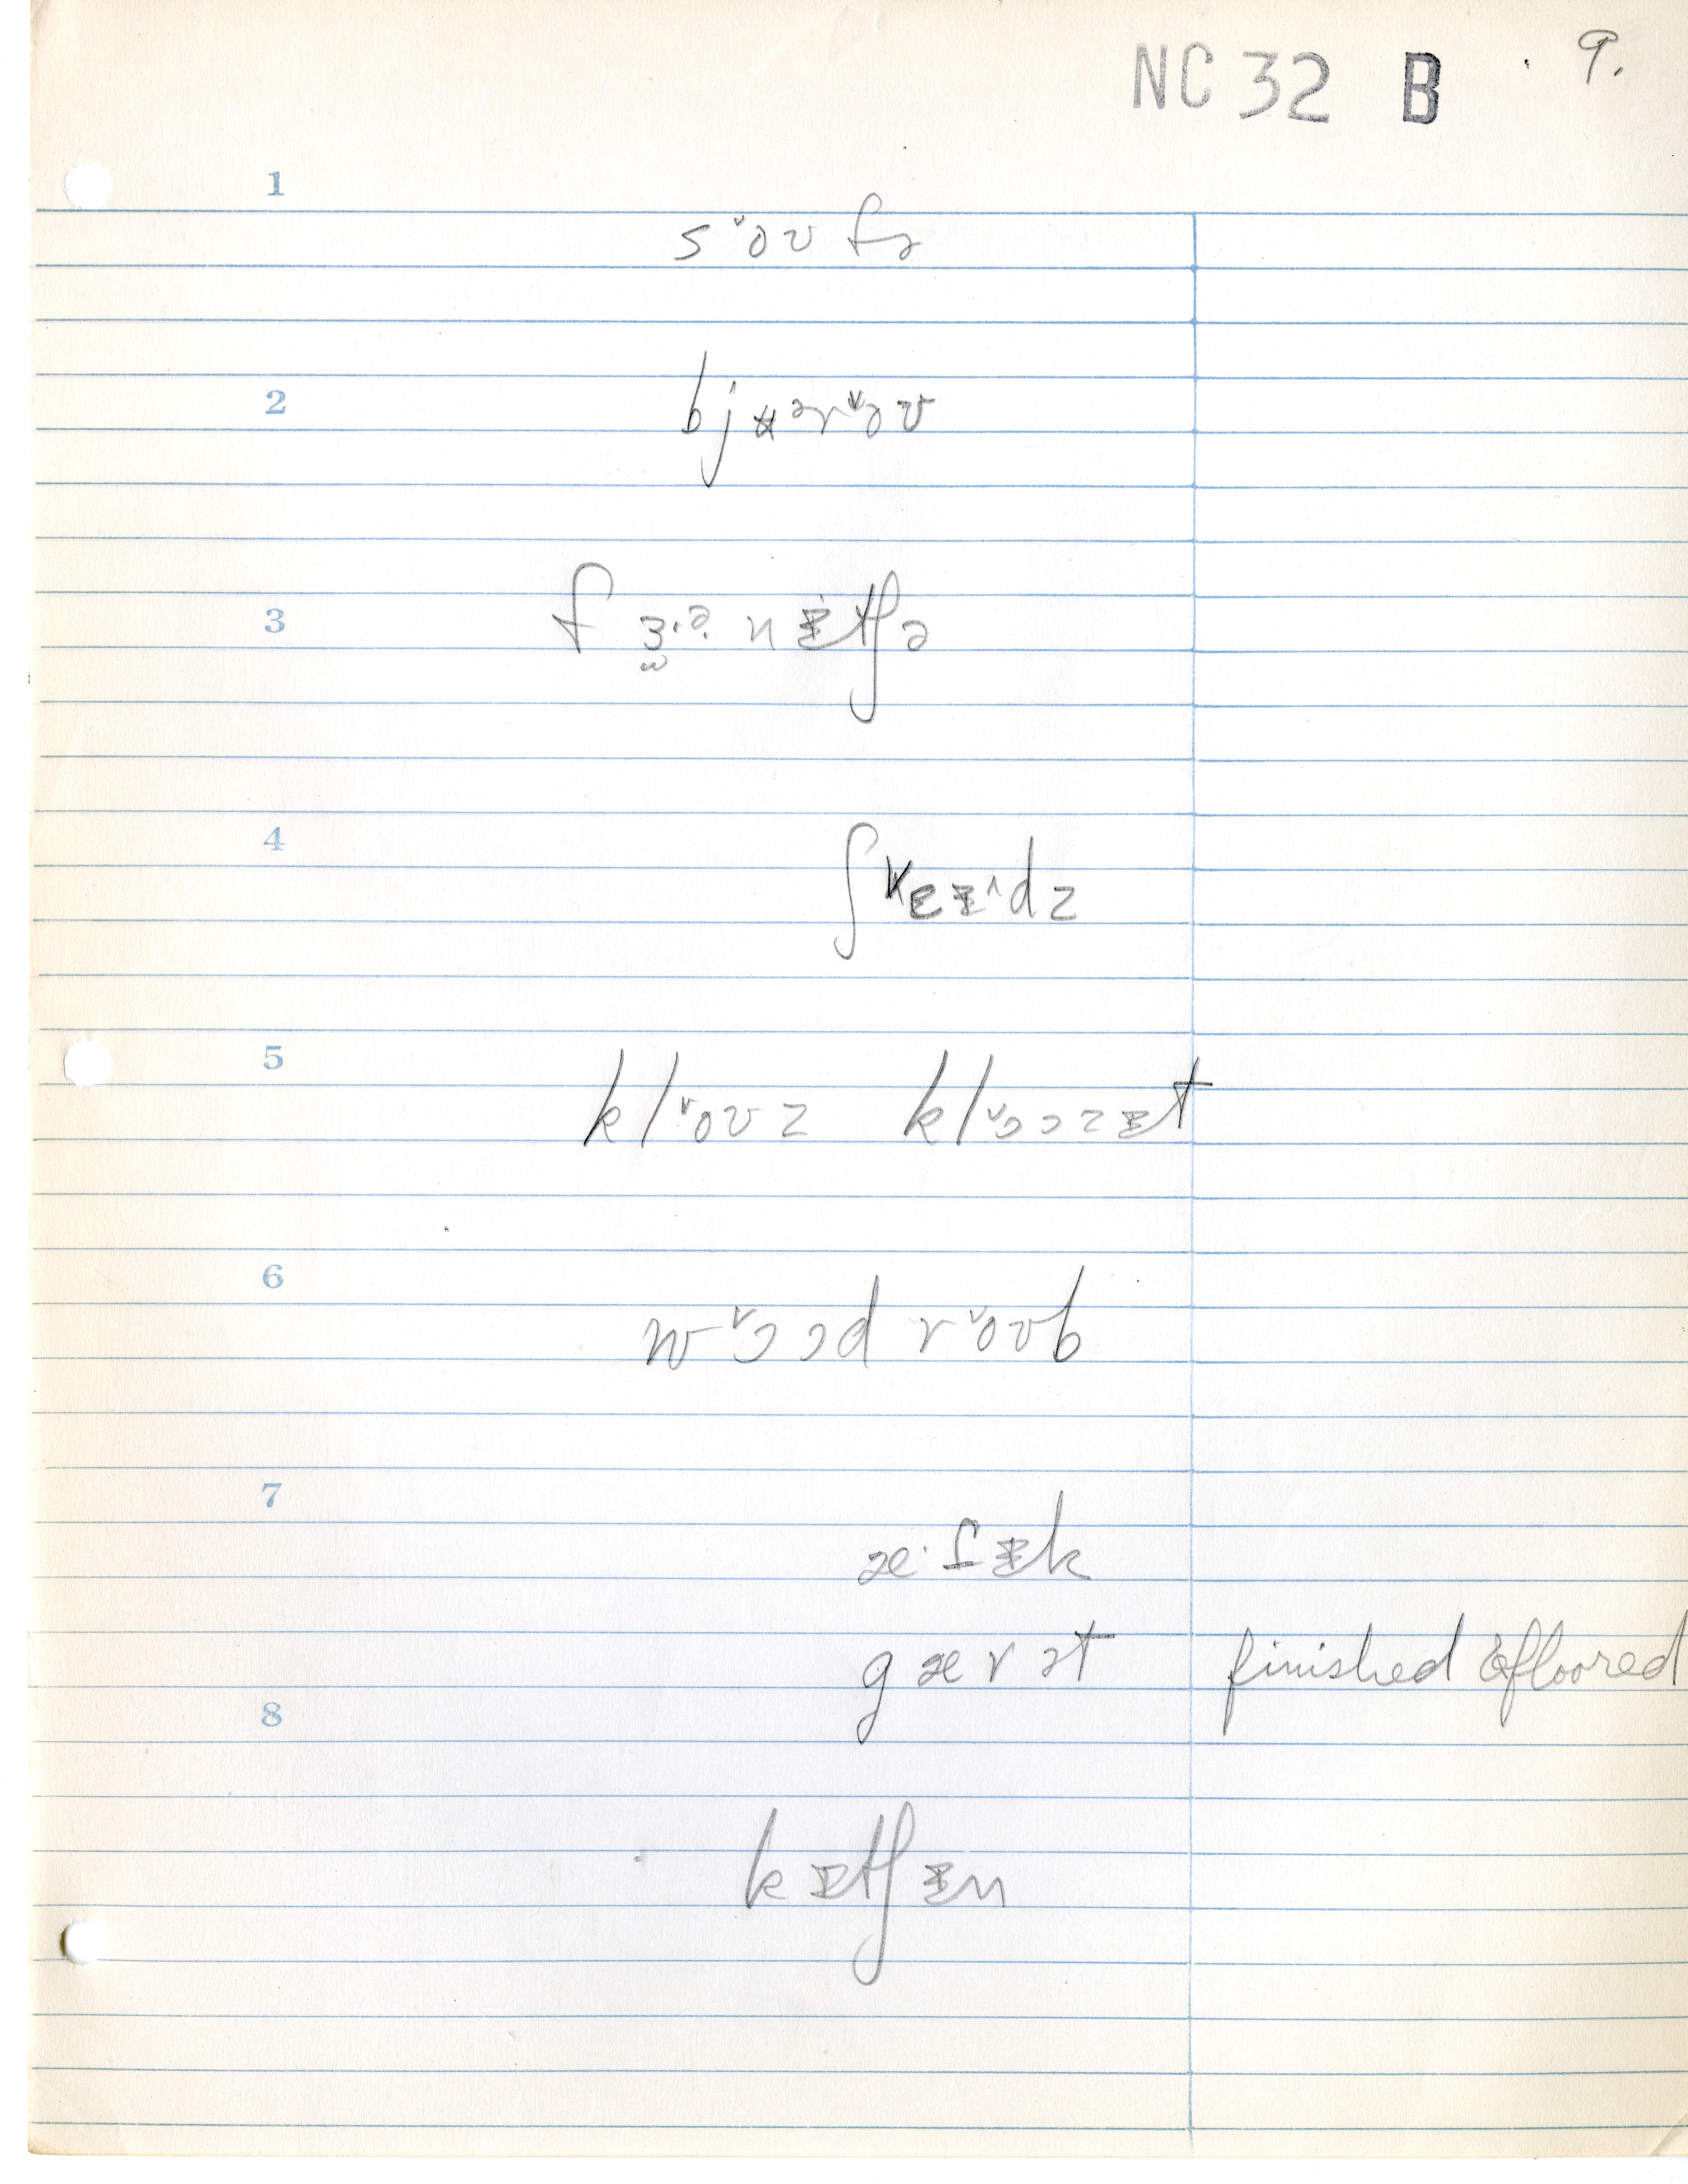 NC 32 B 9.
1
s˅oʊfə
2
bjʉər˅oʊ
3
fɜ̫·ə·nɪtʃə
4
ʃ˅eɪ^dz
5
kl˅oʊz kl˅ɔɔzɪt
6
w˅ɔɔdr˅oʊb
7
æ·fɪk
gærət finished & floored
8
kɪtʃɪn